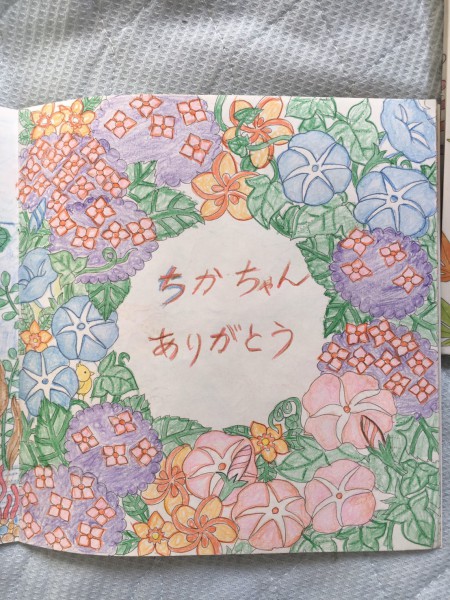 ちかちゃん
ありがとう